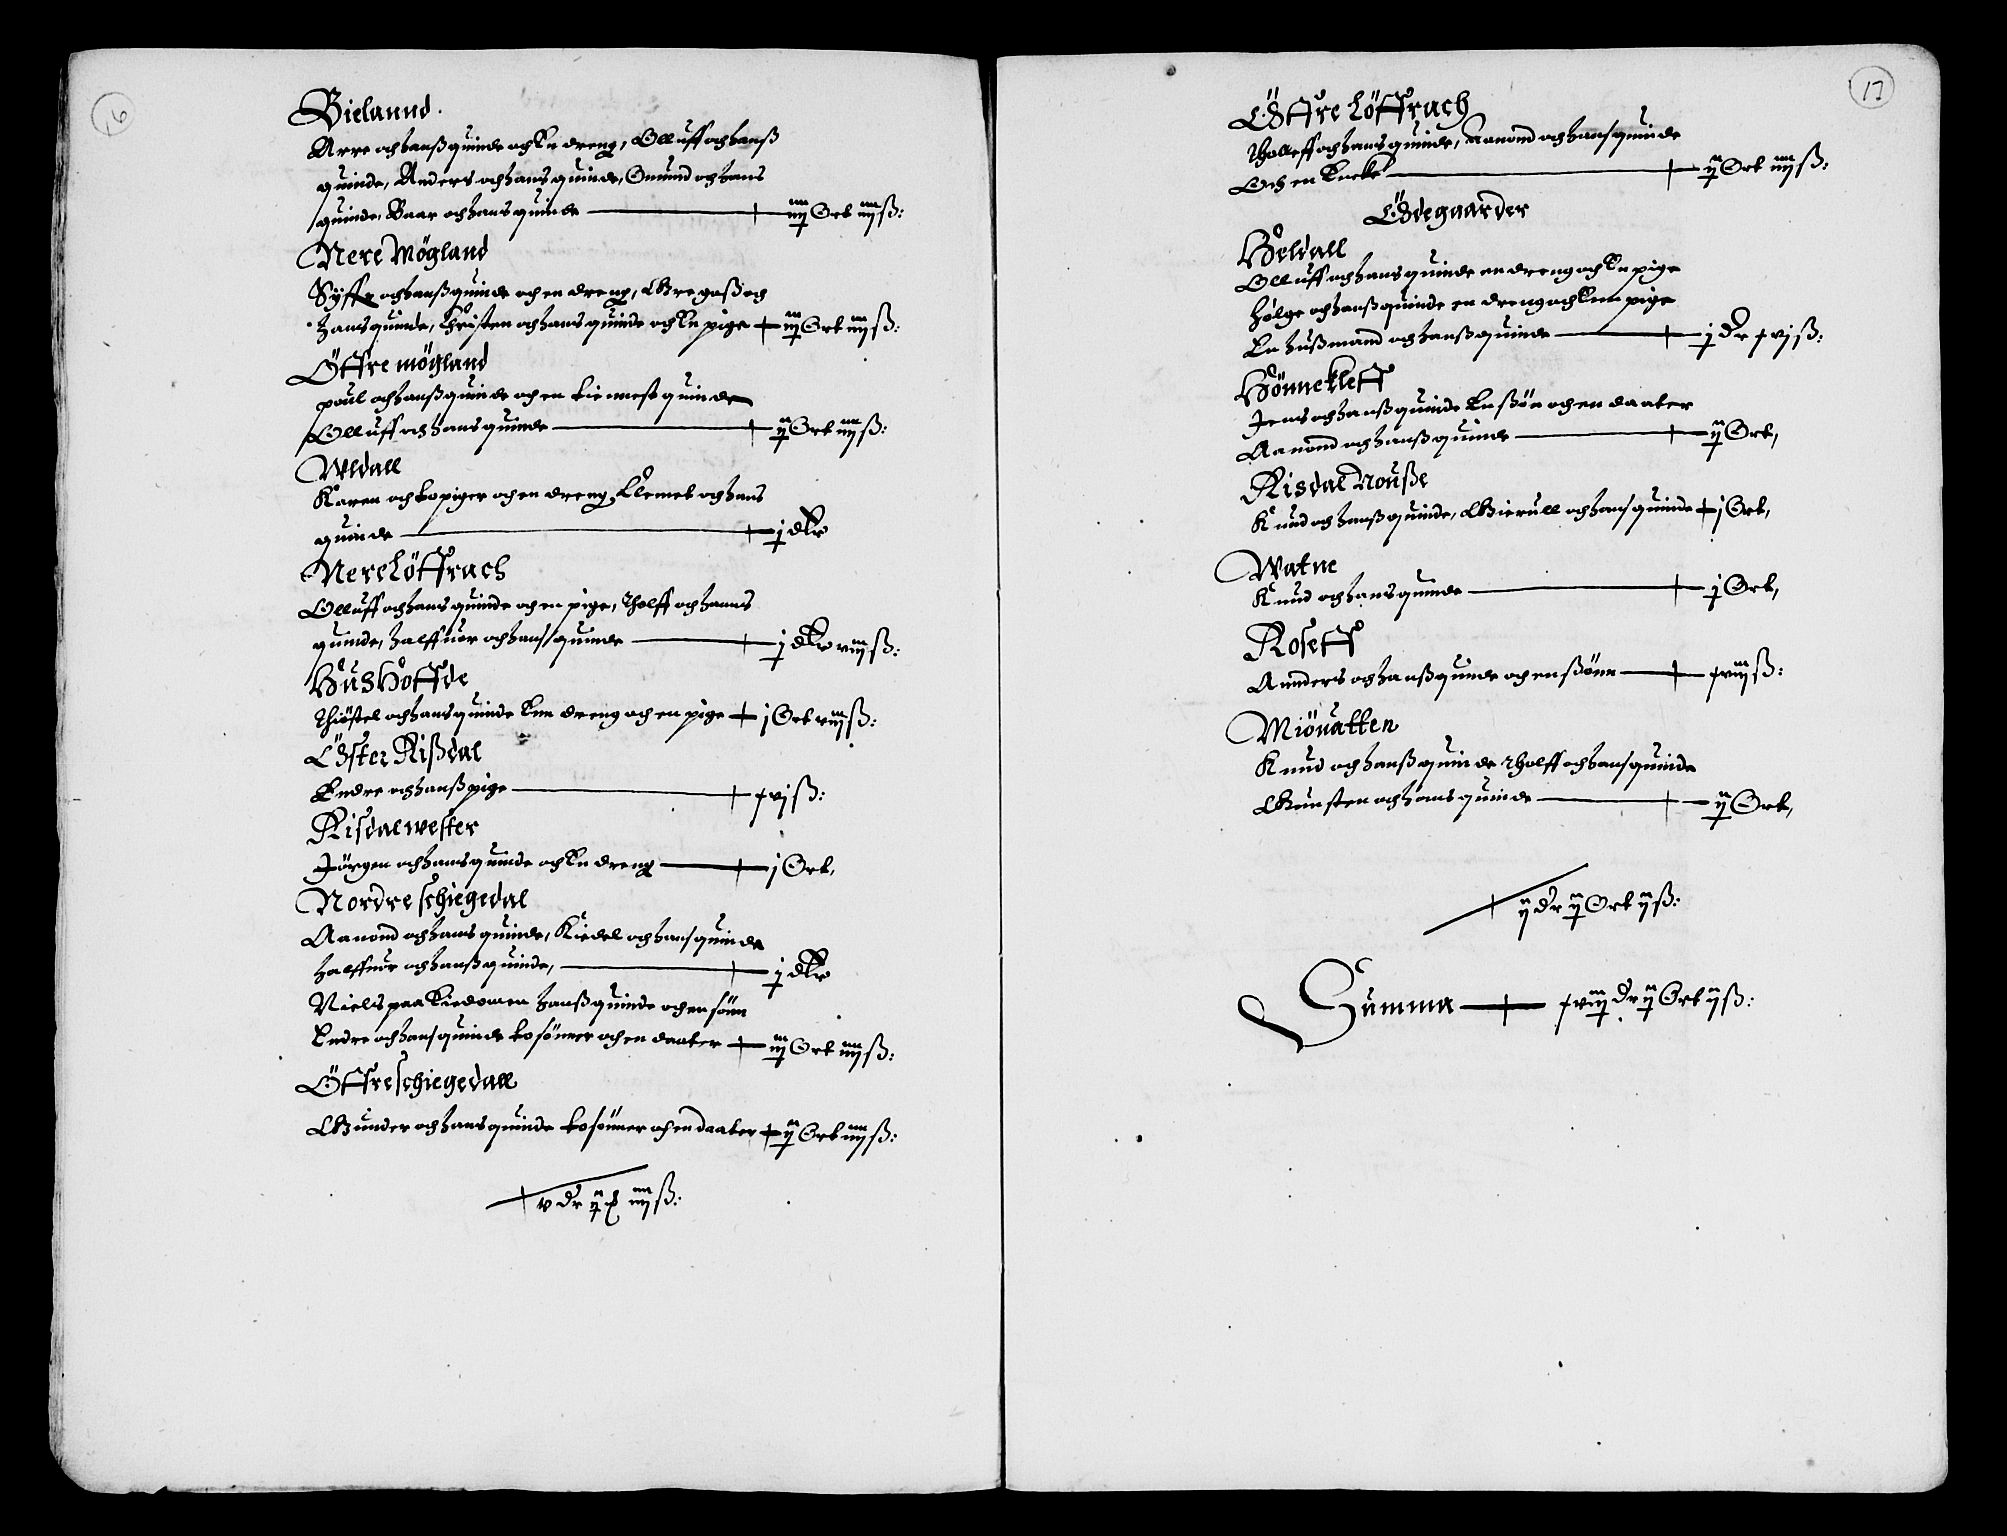 16
Bielannd.
Arre och hanß quinde och En dreng, Olluff och hanß
quinde, Anders och hans quinde, Omund och hans
quinde, Baar och hans quinde —— iiij Ort iiij ß:
Nere Mögland
Syffr och hanß quinde och en dreng, Gregaß och
hans quinde, Christen och hans quinde och En pige — iij Ort iiij ß:
Öffre mögland
poul och hanß quinde och en tiennest quinde
Olluff och hans quinde —— ij Ort iiij ß:
Wldall
Karen och to piger och en dreng, Clemet och hans
quinde —— j dlr
Nere Löffrach
Olluff och hans quinde och en pige, Tholff och hanns
quinde, halffuor och hans quinde —— j dlr viij ß:
Hus Hoffde
Thiöstel och hans quinde Enn dreng och en pige — j Ort viij ß:
Öster Rißdal
Endre och hanß pige —— xvj ß:
Risdal wester
Jörgen och hans quinde och En dreng —— j Ort,
Nordre schiegedal
Aanond och hans quinde, Kiedel och hans quinde
halffuor och hanß quinde, —— j dlr
Niels paa Kiedomen hanß quinde och en sönn
Endre och hans quinde to sönner och en daater — iij Ort iiij ß:
Öffre schiegedall
Gunder och hans quinde to sönner och en daater — ij Ort iiij ß:
v dr ij Ø iiij ß:
17
Öffre Löffrach
Tholleff och hans quinde, Aanond och hans quinde
Och en Encke —— ij Ort iiij ß:
Ödegaarder
Heldall
Olluff och hans quinde en dreng och En pige
Hølge och hanß quinde en dreng och Enn pige
En hußmand och hanß quinde —— j dr xvj ß:
Hönnekleff
Jens och hanß quinde En ßön och en daater
Aanond och hanß quinde —— ij Ort,
Risdal Nouße
Knud och hanß quinde, Gierull och hans quinde — j Ort,
Watne
Knud och hans quinde —— j Ort,
Roseff
Annders och hanß quinde och en ßönn —— xviij ß:
Miöuatten
Knud och hanß quinde Tholff och hans quinde
Gunsten och hans quinde —— ij Ort,
ij dr ij Ort ij ß:
Summa —— xviij dr ij Ort ij ß: